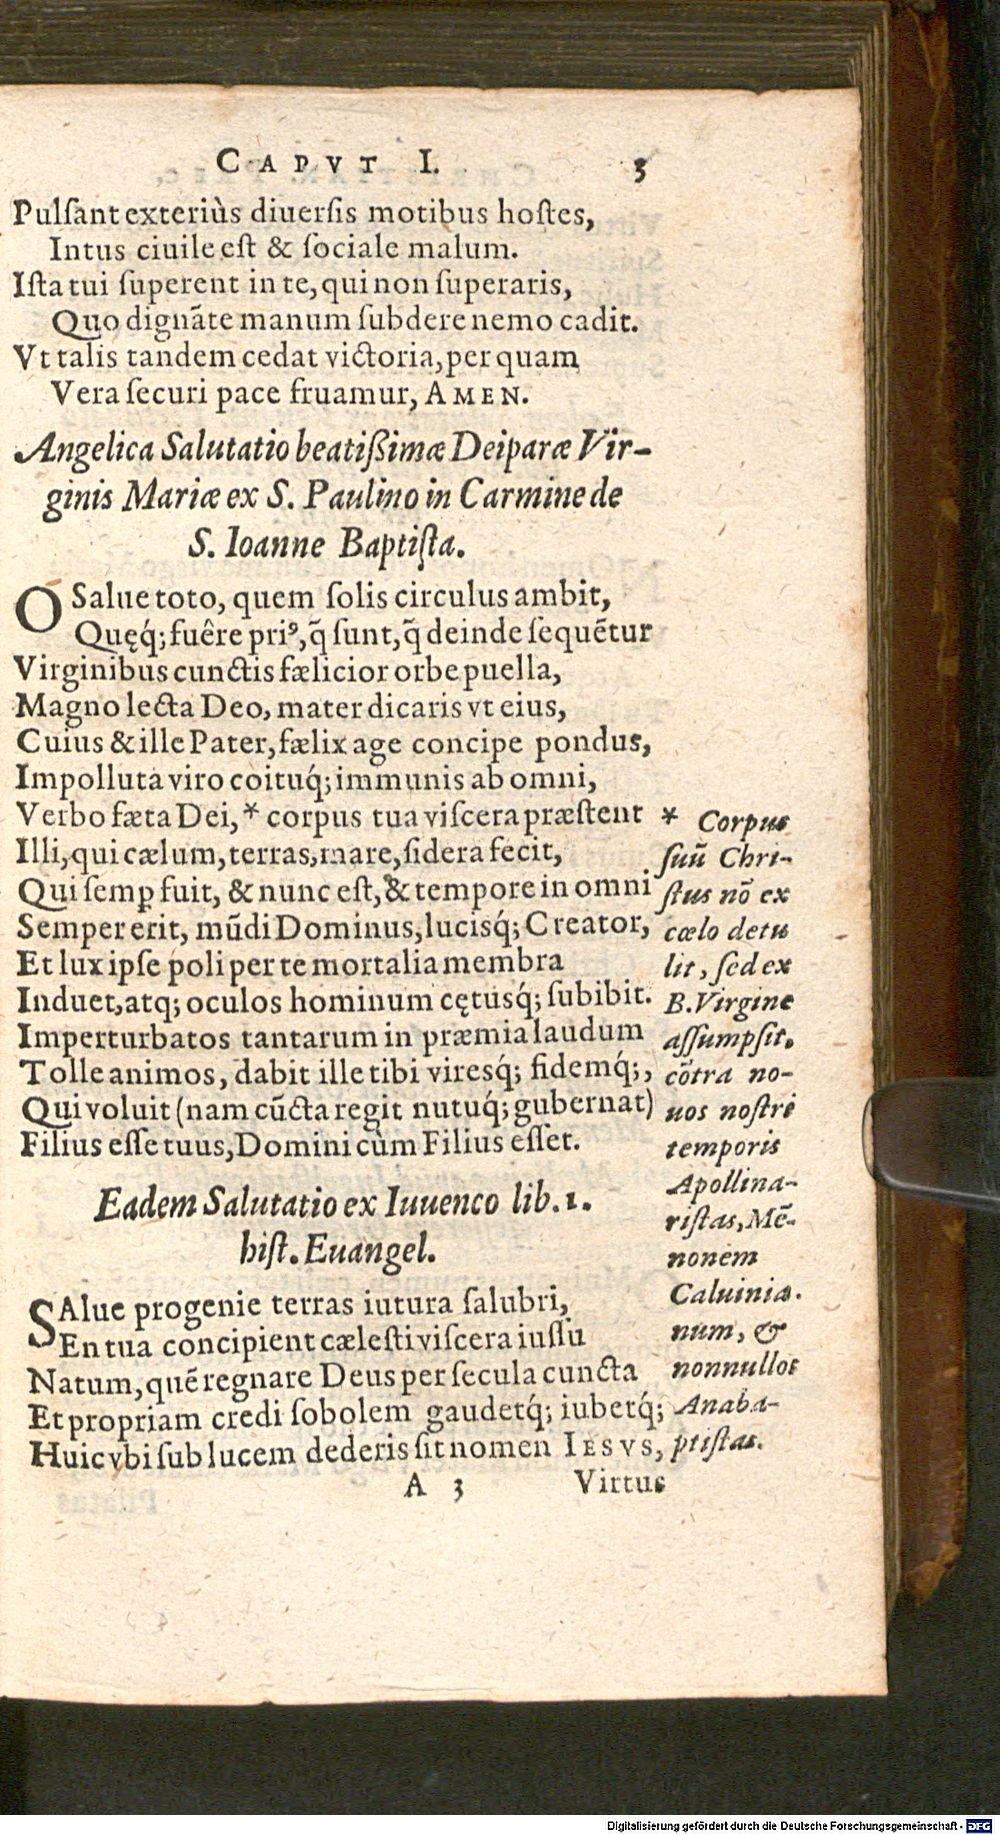 CAPVT I. 3
Pulſant exteriùs diuerſis motibus hoſtes,
Intus ciuile eſt & ſociale malum.
Iſta tui ſuperent in te, qui non ſuperaris,
Quo dignāte manum ſubdere nemo cadit.
Vt talis tandem cedat victoria, per quam
Vera ſecuri pace fruamur, AMEN.
Angelica Salutatio beatißimæ Deiparæ Vir-
ginis Mariæ ex S. Paulino in Carmine de
S. Ioanne Baptiſta.
O Salue toto, quem ſolis circulus ambit,
Quęq́; fuêre priꝰ, q̄ ſunt, q̄ deinde ſequētur
Virginibus cunctis fælicior orbe puella,
Magno lecta Deo, mater dicaris vt eius,
Cuius & ille Pater, fælix age concipe pondus,
Impolluta viro coituq́; immunis ab omni,
Verbo fæta Dei, * corpus tua viſcera præſtent
Illi, qui cælum, terras, mare, ſidera fecit,
Qui ſemꝑ fuit, & nunc eſt, & tempore in omni
Semper erit, mūdi Dominus, lucisq́; Creator,
Et lux ipſe poli per te mortalia membra
Induet, atq; oculos hominum cętusq́; ſubibit.
Imperturbatos tantarum in præmia laudum
Tolle animos, dabit ille tibi viresq́; fidemq́;,
Qui voluit (nam cūcta regit nutuq́; gubernat)
Filius eſſe tuus, Domini cùm Filius eſſet.
* Corpus
ſuū Chri-
ſtus nō ex
cælo detu
lit, ſed ex
B. Virgine
aſſumpſit.
cōtra no-
uos noſtri
temporis
Apollina-
riſtas, Mē-
nonem
Caluinia.
num, &
nonnullos
Anaba-
ptiſtas.
Eadem Salutatio ex Iuuenco lib. 1.
hiſt. Euangel.
SAlue progenie terras iutura ſalubri,
En tua concipient cæleſti viſcera iuſſu
Natum, quē regnare Deus per ſecula cuncta
Et propriam credi ſobolem gaudetq́; iubetq́;
Huic vbi ſub lucem dederis ſit nomen IESVS,
A 3 Virtus
Digitalisierung gefördert durch die Deutsche Forschungsgemeinschaft - DFG